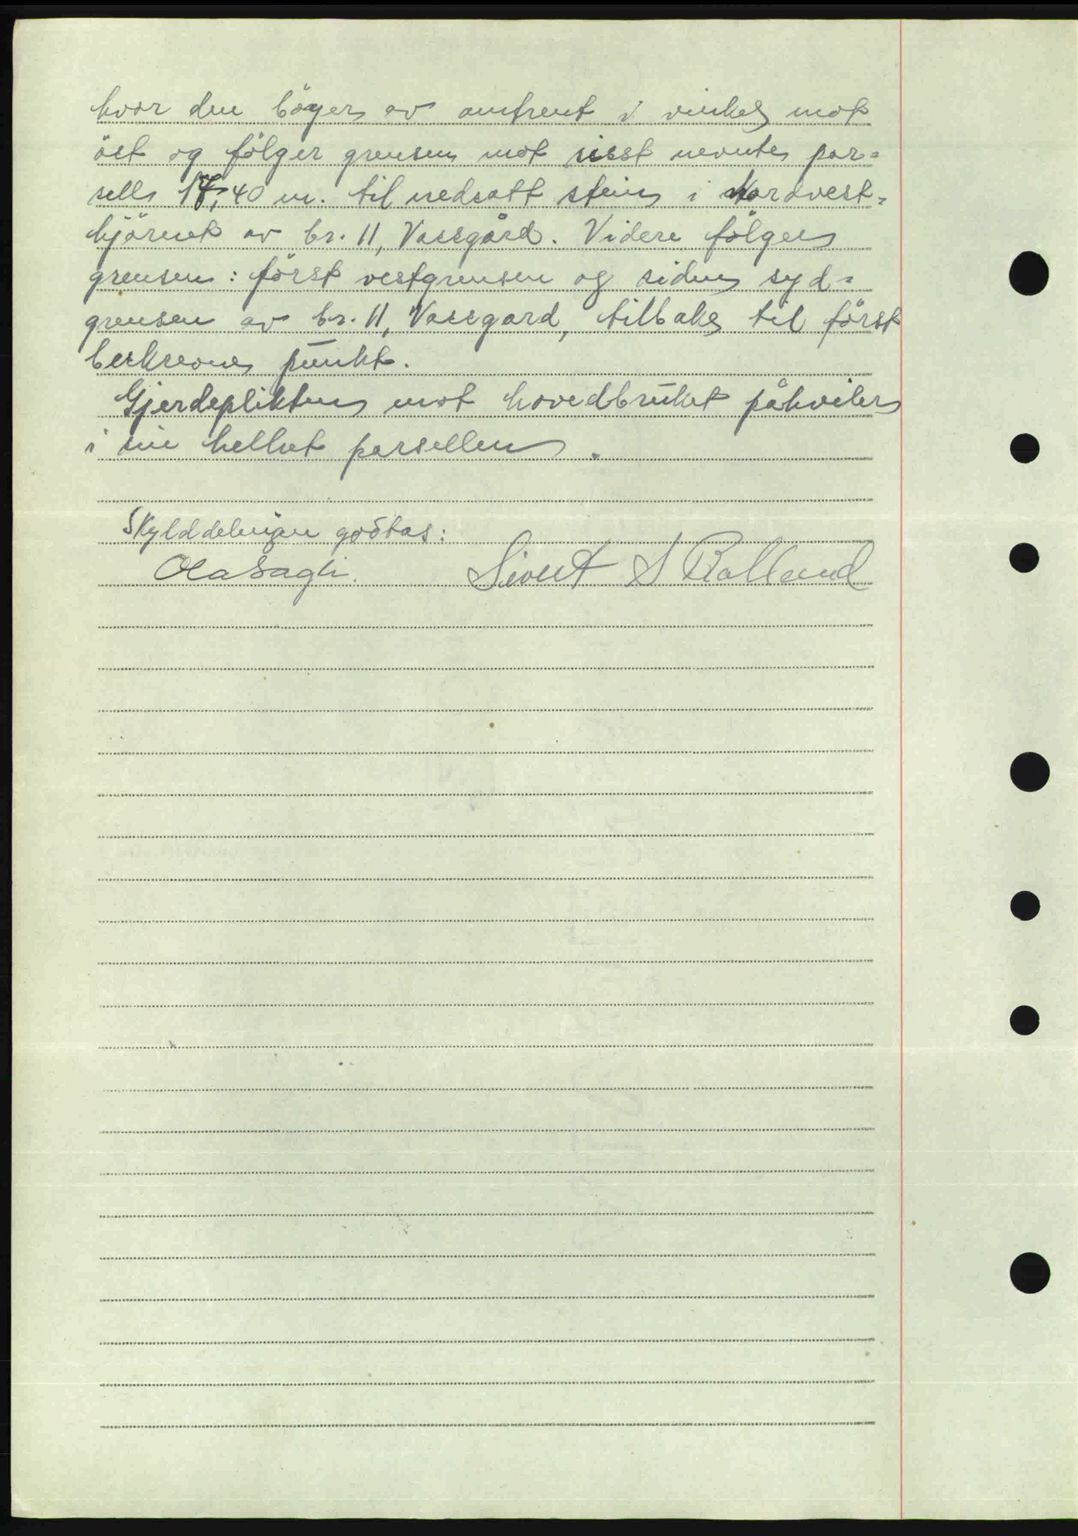 hvor den böyer av omtrent i vinkel mot
öst og fölger grensen mot sisst nevnte par=
sell 17,40 m. til nedsatt stein i Nordvest=
hjörnet av br. 11, Vassgård. Videre fölger
grensen: först vestgrensen og siden syd=
grensen av br. 11, Vassgard, tilbake til först
beskrevne punkt.
Gjerdeplikten mot hovedbruket påhviler
i sin helhet parsellen.
Skylddelingen godtas:
Ola Sagli. Sivert S Rolland